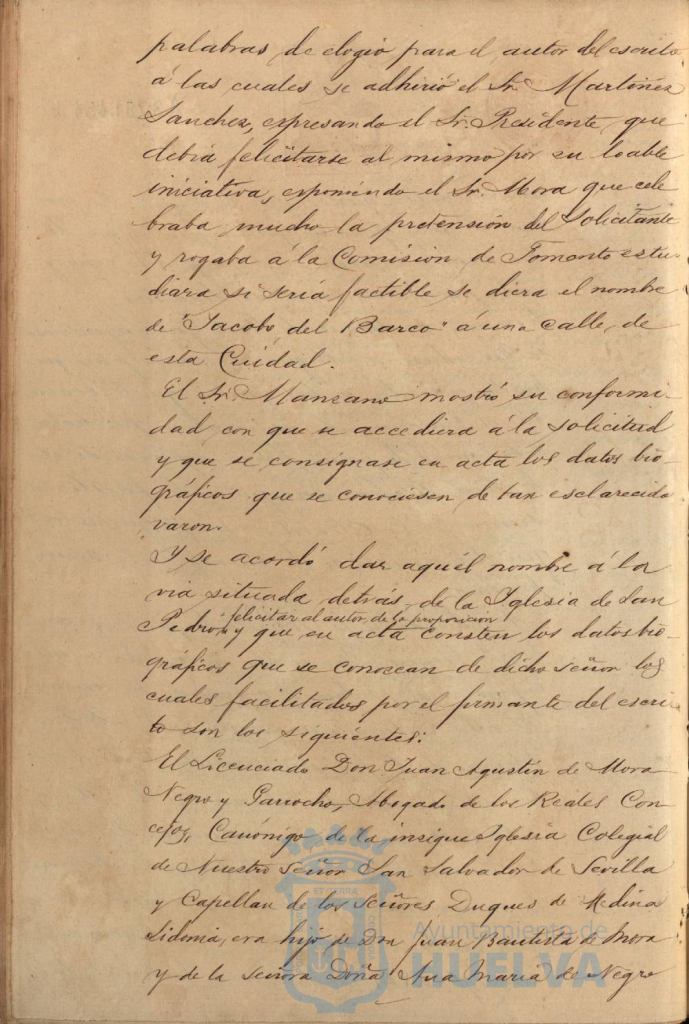 palabras de elogio para el autor del escrito
á las cuales se adhirió el Sr. Martinez
Sanchez, expresando el Sr. Presidente, que
debía felicitarse al mismo por su loable
iniciativa, exponiendo el Sr. Mora que cele
braba mucho la pretensión del Solicitante
y rogaba á la Comisión de Fomento estu-
diara si sería factible se diera el nombre
de "Jacobo del Barco" á una calle de
esta Cuidad.
El Sr. Manzano mostró su conformi-
dad con que se accediera á la solicitud
y que se consignase en acta los datos bio-
gráficos que se conociesen de tan esclarecido
varon.
Y se acordó dar aquél nombre á la
via situada detrás de la Iglesia de San
felicitar al autor de la proposición
Pedro, y que en acta consten los datos bio-
gráficos que se conozcan de dicho señor los
cuales facilitados por el firmante del escri-
to son los siguientes:
El Licenciado Don Juan Agustín de Mora
Negro y Garrocho, Abogado de los Reales Con
cejos, Canónigo de la insigne Iglesia Colegial
de Nuestro Señor San Salvador de Sevilla
y Capellan de los Señores Duques de Medina
Sidonia, era hijo de Don Juan Bautista de Mora
y de la Señora Doña Ana Maria de Negro
Ayuntamiento de
HUELVA